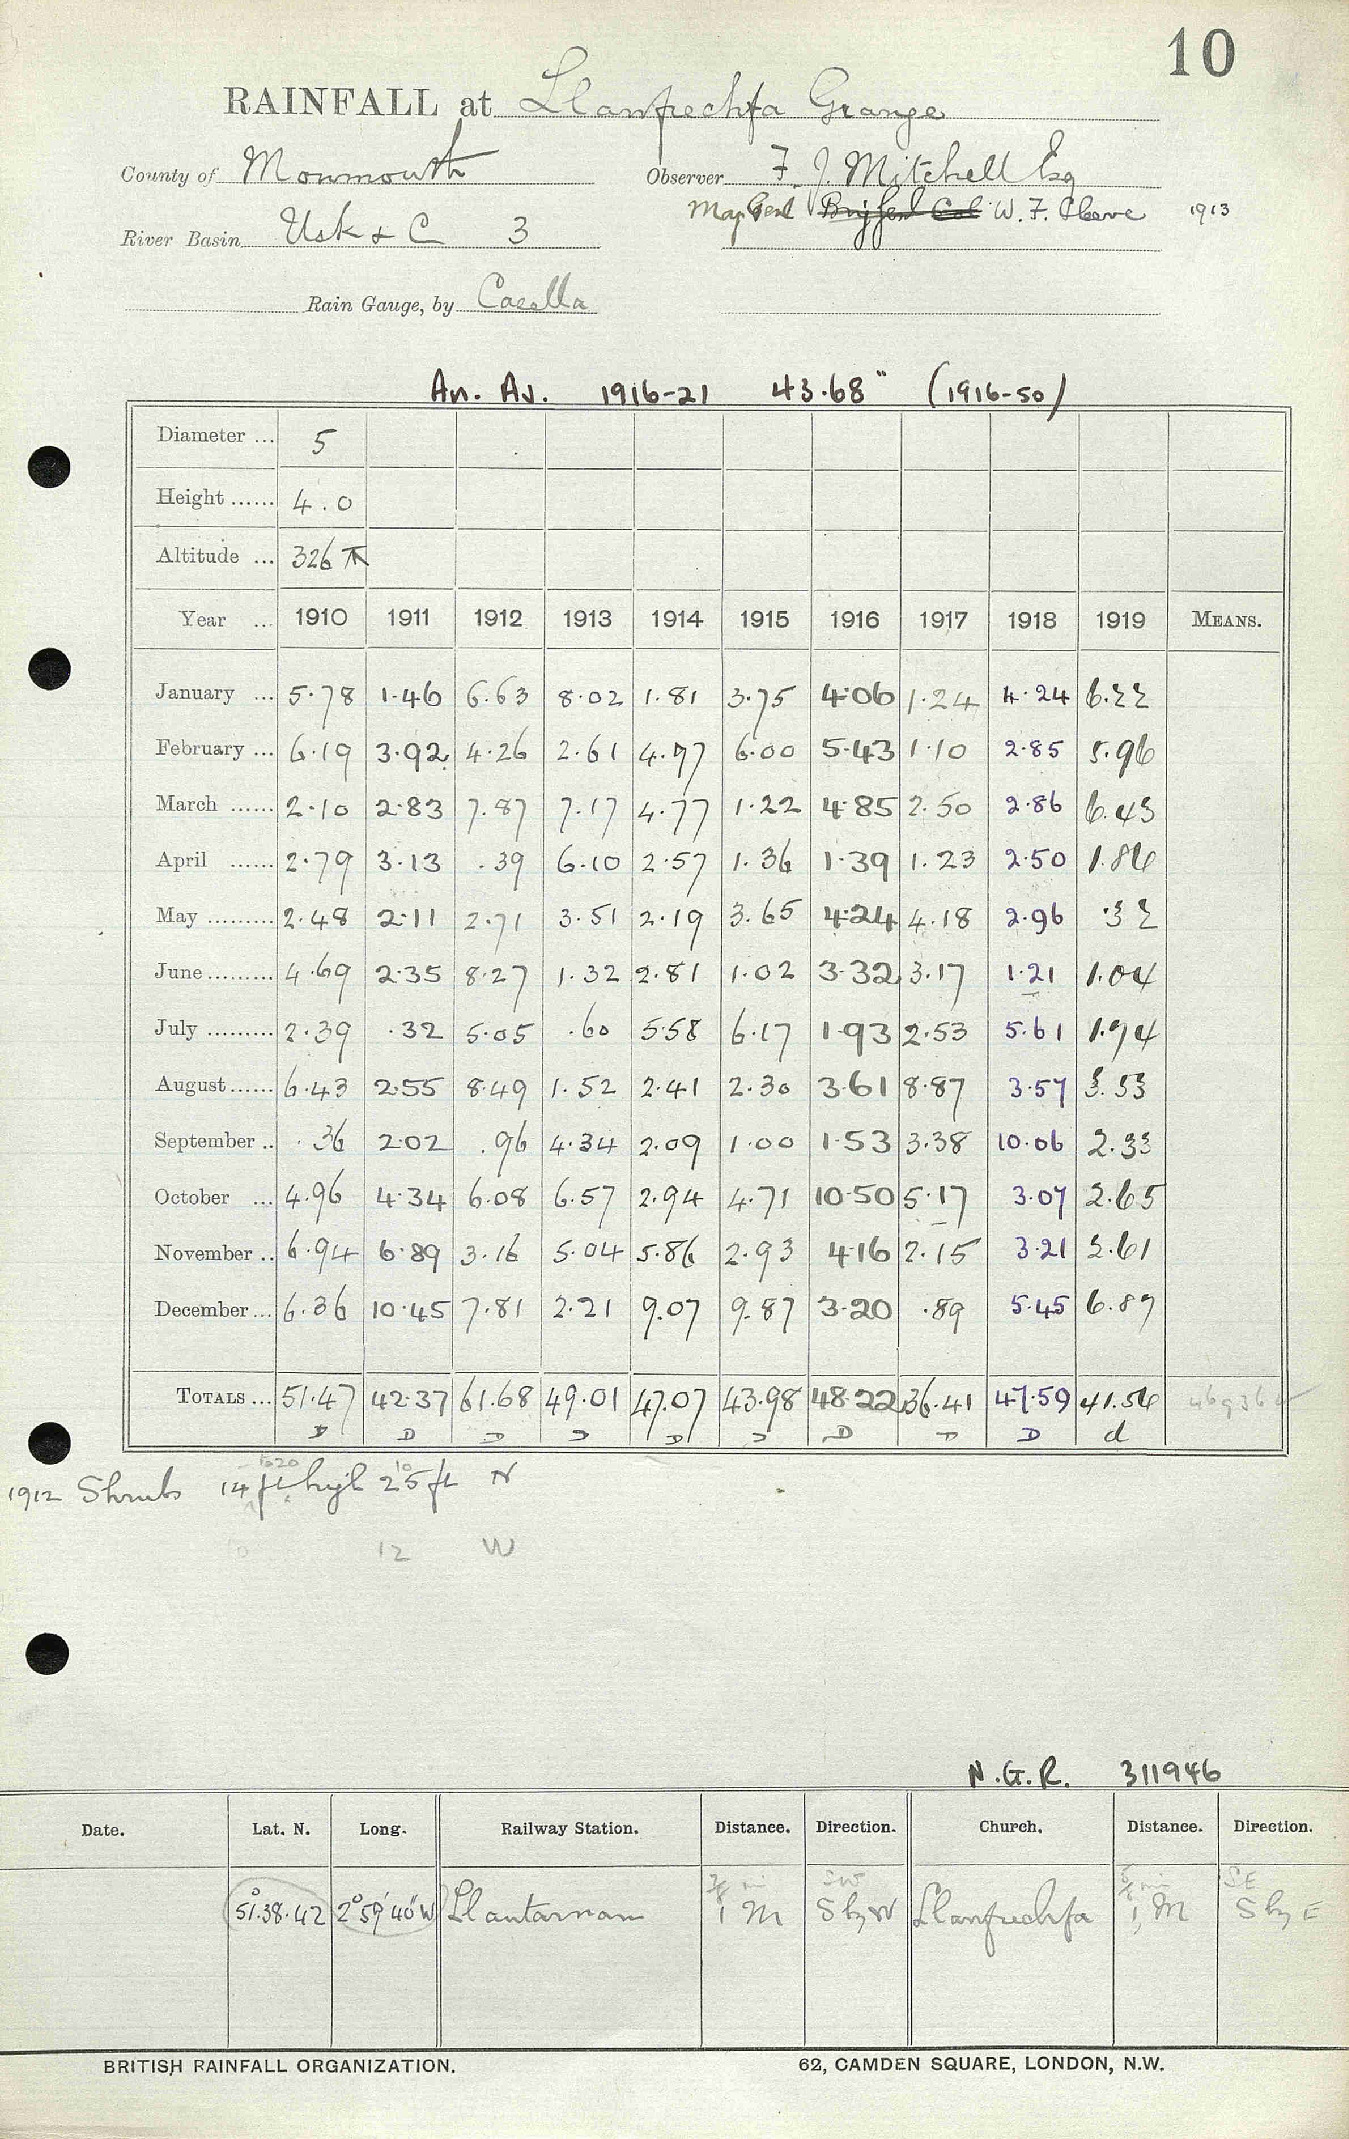 10
RAINFALL at Llanfrechfa Grange
County of Monmouth Observer F. J. Mitchell Esq
Maj Genl W. F. Cleeve 1913
River Basin Usk & C 3
Rain Gauge, by Casella
An. Av. 1916-21 43.68" (1916-50)
Diameter ... 5
Height ...... 4.0
Altitude ... 326
Year ... 1910 1911 1912 1913 1914 1915 1916 1917 1918 1919 MEANS.
January ... 5.78 1.46 6.63 8.02 1.81 3.75 4.06 1.24 4.24 6.22
February ... 6.19 3.92 4.26 2.61 4.97 6.00 5.43 1.10 2.85 5.96
March ...... 2.10 2.83 7.87 7.17 4.77 1.22 4.85 2.50 2.86 6.43
April ...... 2.79 3.13 .39 6.10 2.57 1.36 1.39 1.23 2.50 1.86
May ......... 2.48 2.11 2.71 3.51 2.19 3.65 4.24 4.18 2.96 .32
June ......... 4.69 2.35 8.27 1.32 2.81 1.02 3.32 3.17 1.21 1.04
July ......... 2.39 .32 5.05 .60 5.58 6.17 1.93 2.53 5.61 1.74
August ...... 6.43 2.55 8.49 1.52 2.41 2.30 3.61 8.87 3.57 3.53
September .. .36 2.02 .96 4.34 2.09 1.00 1.53 3.38 10.06 2.33
October ... 4.96 4.34 6.08 6.57 2.94 4.71 10.50 5.17 3.07 2.65
November .. 6.94 6.89 3.16 5.04 5.86 2.93 4.16 2.15 3.21 2.61
December ... 6.36 10.45 7.81 2.21 9.07 9.87 3.20 .89 5.45 6.87
TOTALS ... 51.47 42.37 61.68 49.01 47.07 43.98 48.22 36.41 47.59 41.56
D D D D D D D D D d
1912 Shrubs 14 ft high 25 ft N
12 W
N.G.R. 311946
Date. Lat. N. Long. Railway Station. Distance. Direction. Church. Distance. Direction.
SW SE
51°.38.42 2°59'40"W Llantarnam 1 M S by W Llanfrechfa 1 M S by E
BRITISH RAINFALL ORGANIZATION. 62, CAMDEN SQUARE, LONDON, N.W.